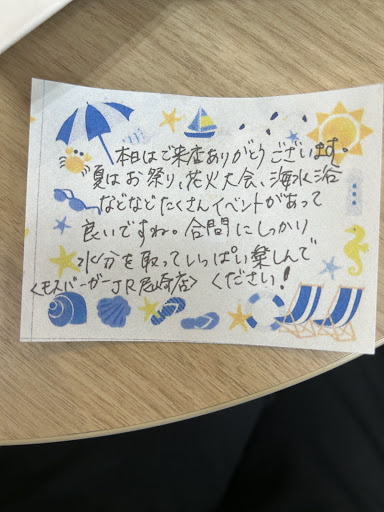 本日はご来店ありがとうございます。
夏はお祭り、花火大会、海水浴
などなどたくさんイベントがあって
良いですね。合間にしっかり
水分を取っていっぱい楽しんで
<モスバーガーJR尼崎店> ください!